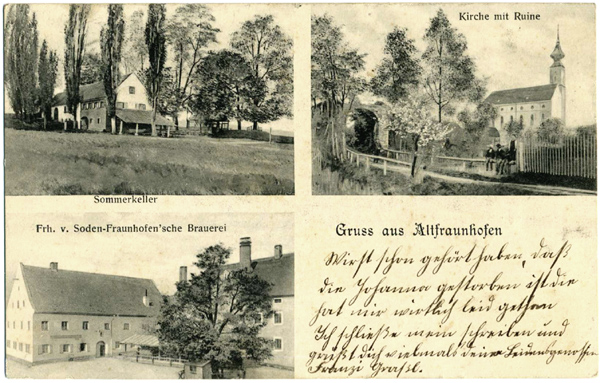 Kirche mit Ruine
Sommerkeller
Frh. v. Soden-Fraunhofen'sche Brauerei
Gruss aus Altfraunhofen
Wirst schon gehört haben, daß
die Johanna gestorben ist die
hat mir wirklich leid gethan
Ich schließe mein schreiben und
grüßt dich vielmals deine Leidensgenossin
Franzi Graßl.